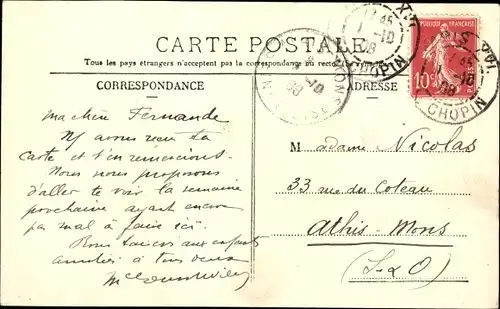 CARTE POSTALE
Tous les pays étrangers n'acceptent pas la correspondance au recto
CORRESPONDANCE
ADRESSE
RÉPUBLIQUE FRANÇAISE
10c
PARIS XVI
12 45
1 -10
08
CHOPIN
MONS
-10
08
Ma chère Fernande
Ns avons reçu ta
carte et t'en remercions.
Nous nous proposons
d'aller te voir la semaine
prochaine ayant encore
pas mal à faire ici.
Bons baisers aux enfants
amitiés à tous deux
Madame Nicolas
33 rue du Coteau
Athis-Mons
(S-&O)